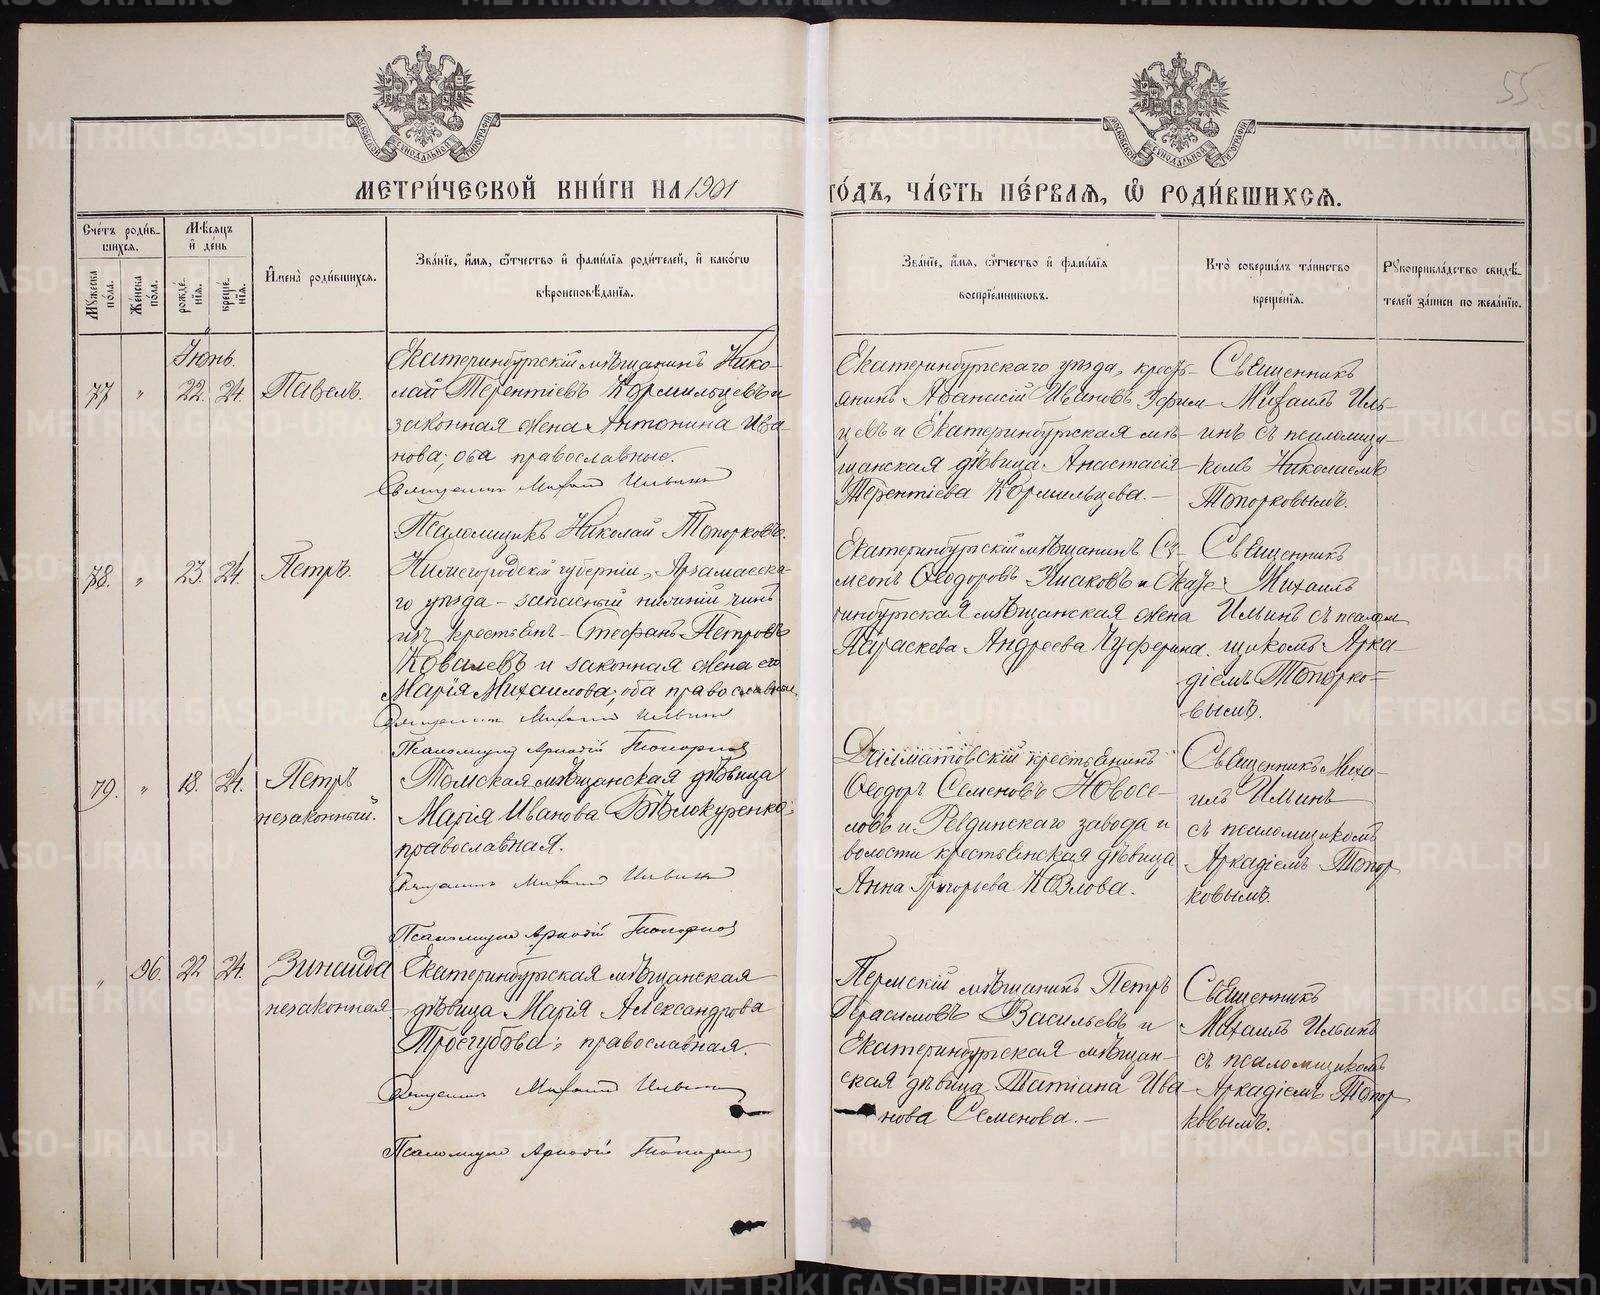 55
МОСКОВСКОЙ СѴНОДАЛЬНОЙ ТИПОГРАФІИ
МОСКОВСКОЙ СѴНОДАЛЬНОЙ ТИПОГРАФІИ
МЕТРИ́ЧЕСКОЙ КНИ́ГИ НА 1901
ГО́ДЪ, ЧА́СТЬ ПЕ́РВАЯ, Ѽ РОДИ́ВШИХСЯ.
Сче́тъ роди́в-
шихся.
Мꙋжеска пола.
Же́нска по́ла.
Мѣсяцъ
и҆ де́нь
рожде-
нїя.
креще-
нїя.
И҆мена̀ роди́вшихся.
Зва́нїе, и҆́мя, ѻ҆́тчество и҆ фами́лїя роди́телей, и҆ како́гѡ
вѣроисповѣ́данїя.
Зва́нїе, и҆́мя, ѻ҆́тчество и҆ фами́лїя
воспрїе́мникѡвъ.
Кто̀ соверша́лъ та́инство
креще́нїя.
Рꙋкоприкла́дство свидѣ́-
телей за́писи по жела́нїю.
Іюнь.
77 " 22. 24. Павелъ.
Екатеринбургскій мѣщанинъ Нико-
лай Терентіевъ Кормильцевъ и
законная жена Антонина Ива-
нова; оба православные.
Священникъ Михаилъ Ильинъ
Псаломщикъ Николай Топорковъ.
Екатеринбургскаго уѣзда, кресть-
янинъ Аѳанасій Ивановъ Уфим-
цевъ и Екатеринбургская мѣ-
щанская дѣвица Анастасія
Терентіева Кормильцева.-
Священникъ
Михаилъ Иль-
инъ съ псаломщи
комъ Николаемъ
Топорковымъ.
78. " 23. 24. Петръ.
Нижегородской губерніи, Арзамасска-
го уѣзда - запасный нижній чинъ
изъ крестьянъ - Стефанъ Петровъ
Ковалевъ и законная жена его
Марія Михаилова; оба православные.
Священникъ Михаилъ Ильинъ
Псаломщикъ Аркадій Топорковъ
Екатеринбургскій мѣщанинъ Си-
меонъ Ѳеодоровъ и Екате-
ринбургская мѣщанская жена
Параскева Андреева Чуферина.
Священникъ
Михаилъ
Ильинъ съ псалом
щикомъ Арка-
діемъ Топорко-
вымъ.
79. " 18. 24. Петръ
незаконный.
Томская мѣщанская дѣвица
Марія Иванова Бѣлокуренко;
православная.
Священникъ Михаилъ Ильинъ
Псаломщикъ Аркадій Топорковъ
Далматовскій крестьянинъ
Ѳеодоръ Семеновъ Новосе-
ловъ и Ревдинскаго завода и
волости крестьянская дѣвица
Анна Григорьева Козлова.
Священникъ Миха-
илъ Ильинъ
съ псаломщикомъ
Аркадіемъ Топор
ковымъ.
" 96. 22 24. Зинаида
незаконная.
Екатеринбургская мѣщанская
дѣвица Марія Александрова
Троегубова; православная.
Священникъ Михаилъ Ильинъ
Псаломщикъ Аркадій Топорковъ
Пермскій мѣщанинъ Петръ
Герасимовъ Васильевъ и
Екатеринбургская мѣщан-
ская дѣвица Татіана Ива
нова Семенова.-
Священникъ
Михаилъ Ильинъ
съ псаломщикомъ
Аркадіемъ Топор
ковымъ.
METRIKI.GASO-URAL.RU